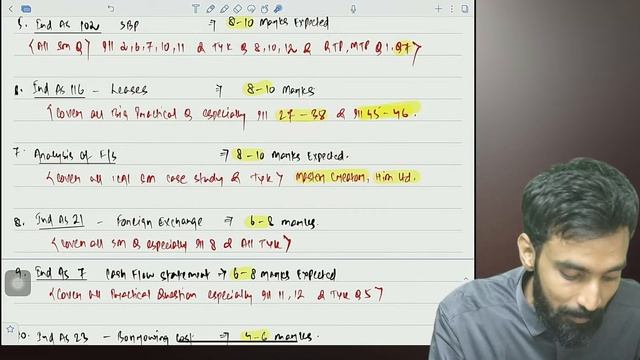 5. Ind As 102 SBP ⇒ 8-10 Marks Expected
< All SM Q > Ill 2, 6, 7, 10, 11 & TYK Q 8, 10, 12 & RTP, MTP Q 1, 97 >
Ind As 116 - Leases ⇒ 8-10 Marks
< Cover all Big Practical Q especially Ill 27 - 38 & Ill 45 - 46.
7. Analysis of F/s ⇒ 8-10 Marks Expected.
< Cover all ICAI SM case study & TYK > Master Creator, Him Ltd.
8. Ind As 21 - Foreign Exchange ⇒ 6-8 marks.
< Cover all SM Q especially Ill 8 & All TYK >
9. Ind As 7 Cash Flow Statement → 6-8 Marks Expected
< Cover All Practical Question especially Ill 11, 12 & TYK Q 5 >
10. Ind As 23 - Borrowing Cost ⇒ 4-6 marks.